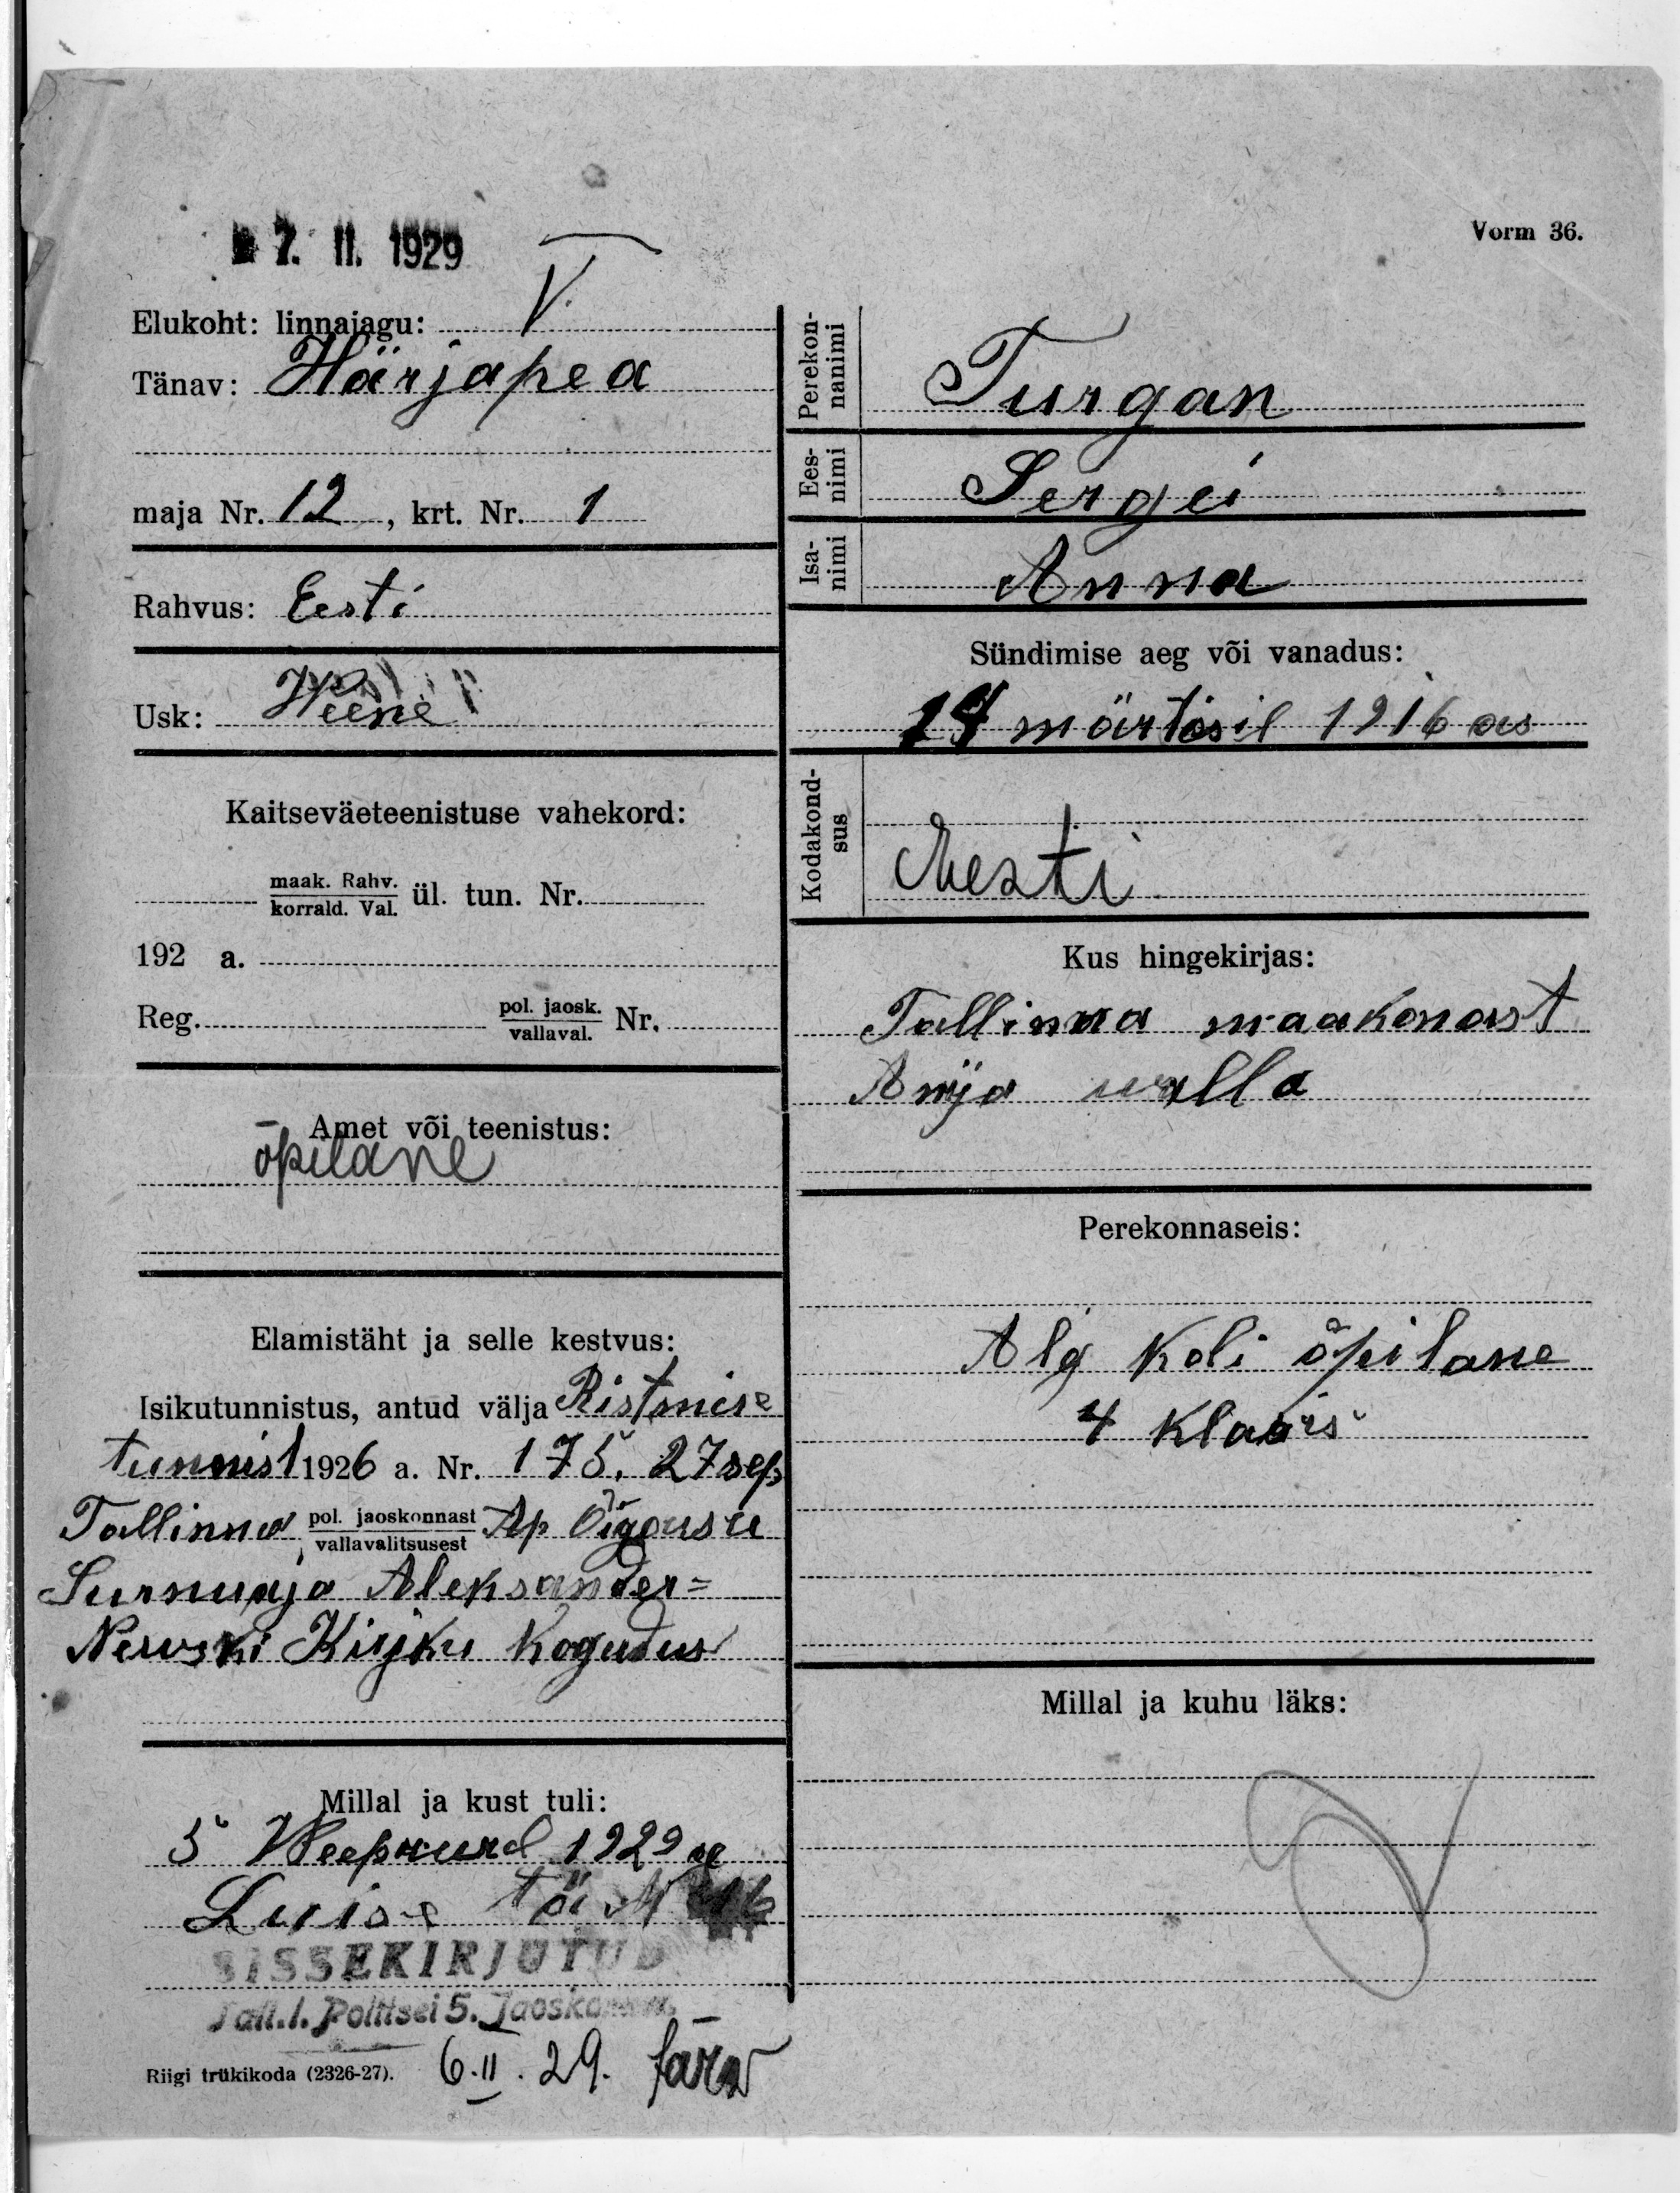 7. II. 1929
Vorm 36.
Elukoht: linnajagu: V.
Tänav: Härjapea
maja Nr. 12, krt. Nr. 1
Rahvus: Eesti
Usk: Weene
Kaitseväeteenistuse vahekord:
maak. Rahv.
korrald. Val. ül. tun. Nr.
192 a.
Reg. pol. jaosk.
vallaval. Nr.
Amet või teenistus:
õpilane
Elamistäht ja selle kestvus:
Isikutunnistus, antud välja Ristmise
tunnist 1926 a. Nr. 175. 27 sep
Tallinna pol. jaoskonnast
vallavalitsusest Ap Õigousu
Surnuaja Aleksander=
Newski Kirjku Kogudus
Millal ja kust tuli:
5 Weeprurd 1929 a
Luise tä N
SISSEKIRJUTUD
Tall.l. Politsei 5. Jaoskonnas.
Riigi trükikoda (2326-27). 6.II.29.
Perekonnanimi
Turgan
Eesnimi
Sergei
Isanimi
Anna
Sündimise aeg või vanadus:
14 märtsil 1916 as
Kodakondsus
Eesti
Kus hingekirjas:
Tallinna maakonast
Anija walla
Perekonnaseis:
Alg koli õpilane
4 klaas
Millal ja kuhu läks: